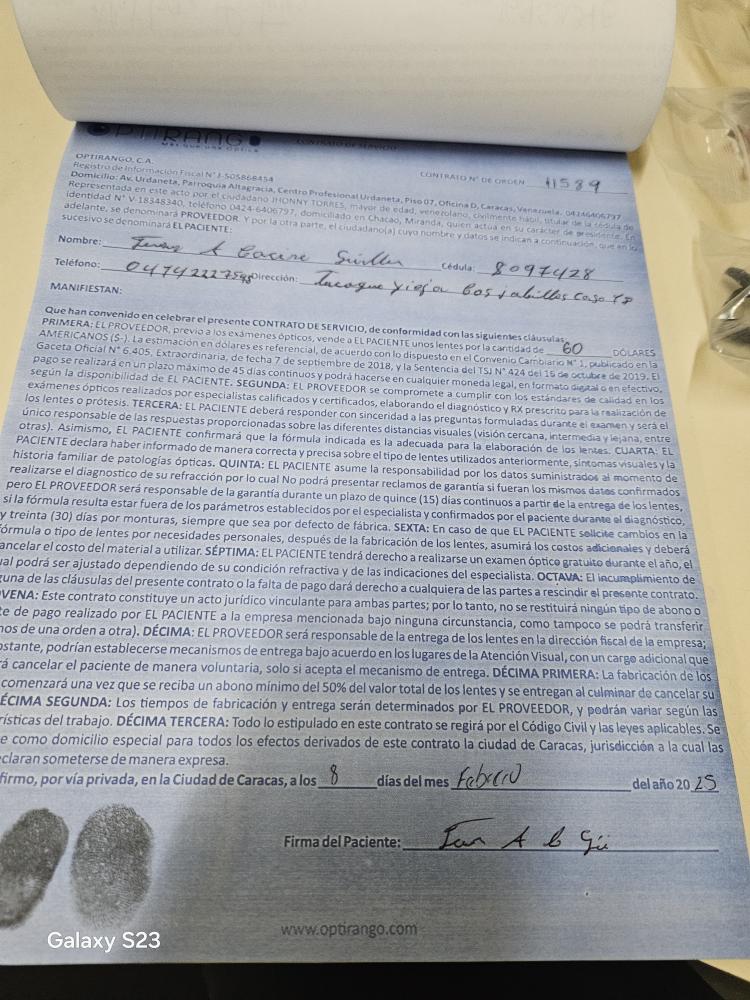 OPTIRANGO
MAS QUE UNA OPTICA
CONTRATO DE SERVICIO
OPTIRANGO, C.A.
Registro de Información Fiscal N° J-505868454
CONTRATO N° DE ORDEN 11589
Domicilio: Av. Urdaneta, Parroquia Altagracia, Centro Profesional Urdaneta, Piso 07, Oficina D, Caracas, Venezuela. 04246406797
Representada en este acto por el ciudadano JHONNY TORRES, mayor de edad, venezolano, civilmente hábil, titular de la cédula de
identidad N° V-18348340, teléfono 0424-6406797, domiciliado en Chacao, Miranda, quien actúa en su carácter de presidente. En
adelante, se denominará PROVEEDOR. Y por la otra parte, el ciudadano(a) cuyo nombre y datos se indican a continuación, que en lo
sucesivo se denominará EL PACIENTE:
Nombre: A Cédula: 8097428
Teléfono: Dirección: casa
MANIFIESTAN:
Que han convenido en celebrar el presente CONTRATO DE SERVICIO, de conformidad con las siguientes cláusulas:
PRIMERA: EL PROVEEDOR, previo a los exámenes ópticos, vende a EL PACIENTE unos lentes por la cantidad de 60 DÓLARES
AMERICANOS (S-). La estimación en dólares es referencial, de acuerdo con lo dispuesto en el Convenio Cambiario N° 1, publicado en la
Gaceta Oficial N° 6.405, Extraordinaria, de fecha 7 de septiembre de 2018, y la Sentencia del TSJ N° 424 del 16 de octubre de 2019. El
pago se realizará en un plazo máximo de 45 días continuos y podrá hacerse en cualquier moneda legal, en formato digital o en efectivo,
según la disponibilidad de EL PACIENTE. SEGUNDA: EL PROVEEDOR se compromete a cumplir con los estándares de calidad en los
exámenes ópticos realizados por especialistas calificados y certificados, elaborando el diagnóstico y RX prescrito para la realización de
los lentes o prótesis. TERCERA: EL PACIENTE deberá responder con sinceridad a las preguntas formuladas durante el examen y será el
único responsable de las respuestas proporcionadas sobre las diferentes distancias visuales (visión cercana, intermedia y lejana, entre
otras). Asimismo, EL PACIENTE confirmará que la fórmula indicada es la adecuada para la elaboración de los lentes. CUARTA: EL
PACIENTE declara haber informado de manera correcta y precisa sobre el tipo de lentes utilizados anteriormente, síntomas visuales y la
historia familiar de patologías ópticas. QUINTA: EL PACIENTE asume la responsabilidad por los datos suministrados al momento de
realizarse el diagnostico de su refracción por lo cual No podrá presentar reclamos de garantía si fueran los mismos datos confirmados
pero EL PROVEEDOR será responsable de la garantía durante un plazo de quince (15) días continuos a partir de la entrega de los lentes,
si la fórmula resulta estar fuera de los parámetros establecidos por el especialista y confirmados por el paciente durante el diagnóstico,
y treinta (30) días por monturas, siempre que sea por defecto de fábrica. SEXTA: En caso de que EL PACIENTE solicite cambios en la
fórmula o tipo de lentes por necesidades personales, después de la fabricación de los lentes, asumirá los costos adicionales y deberá
ancelar el costo del material a utilizar. SÉPTIMA: EL PACIENTE tendrá derecho a realizarse un examen óptico gratuito durante el año, el
ual podrá ser ajustado dependiendo de su condición refractiva y de las indicaciones del especialista. OCTAVA: El incumplimiento de
guna de las cláusulas del presente contrato o la falta de pago dará derecho a cualquiera de las partes a rescindir el presente contrato.
OVENA: Este contrato constituye un acto jurídico vinculante para ambas partes; por lo tanto, no se restituirá ningún tipo de abono o
te de pago realizado por EL PACIENTE a la empresa mencionada bajo ninguna circunstancia, como tampoco se podrá transferir
nos de una orden a otra). DÉCIMA: EL PROVEEDOR será responsable de la entrega de los lentes en la dirección fiscal de la empresa;
nstante, podrían establecerse mecanismos de entrega bajo acuerdo en los lugares de la Atención Visual, con un cargo adicional que
rá cancelar el paciente de manera voluntaria, solo si acepta el mecanismo de entrega. DÉCIMA PRIMERA: La fabricación de los
comenzará una vez que se reciba un abono mínimo del 50% del valor total de los lentes y se entregan al culminar de cancelar su
ÉCIMA SEGUNDA: Los tiempos de fabricación y entrega serán determinados por EL PROVEEDOR, y podrán variar según las
rísticas del trabajo. DÉCIMA TERCERA: Todo lo estipulado en este contrato se regirá por el Código Civil y las leyes aplicables. Se
e como domicilio especial para todos los efectos derivados de este contrato la ciudad de Caracas, jurisdicción a la cual las
claran someterse de manera expresa.
firmo, por vía privada, en la Ciudad de Caracas, a los 8 días del mes Febrero del año 2025
Firma del Paciente:
www.optirango.com
Galaxy S23